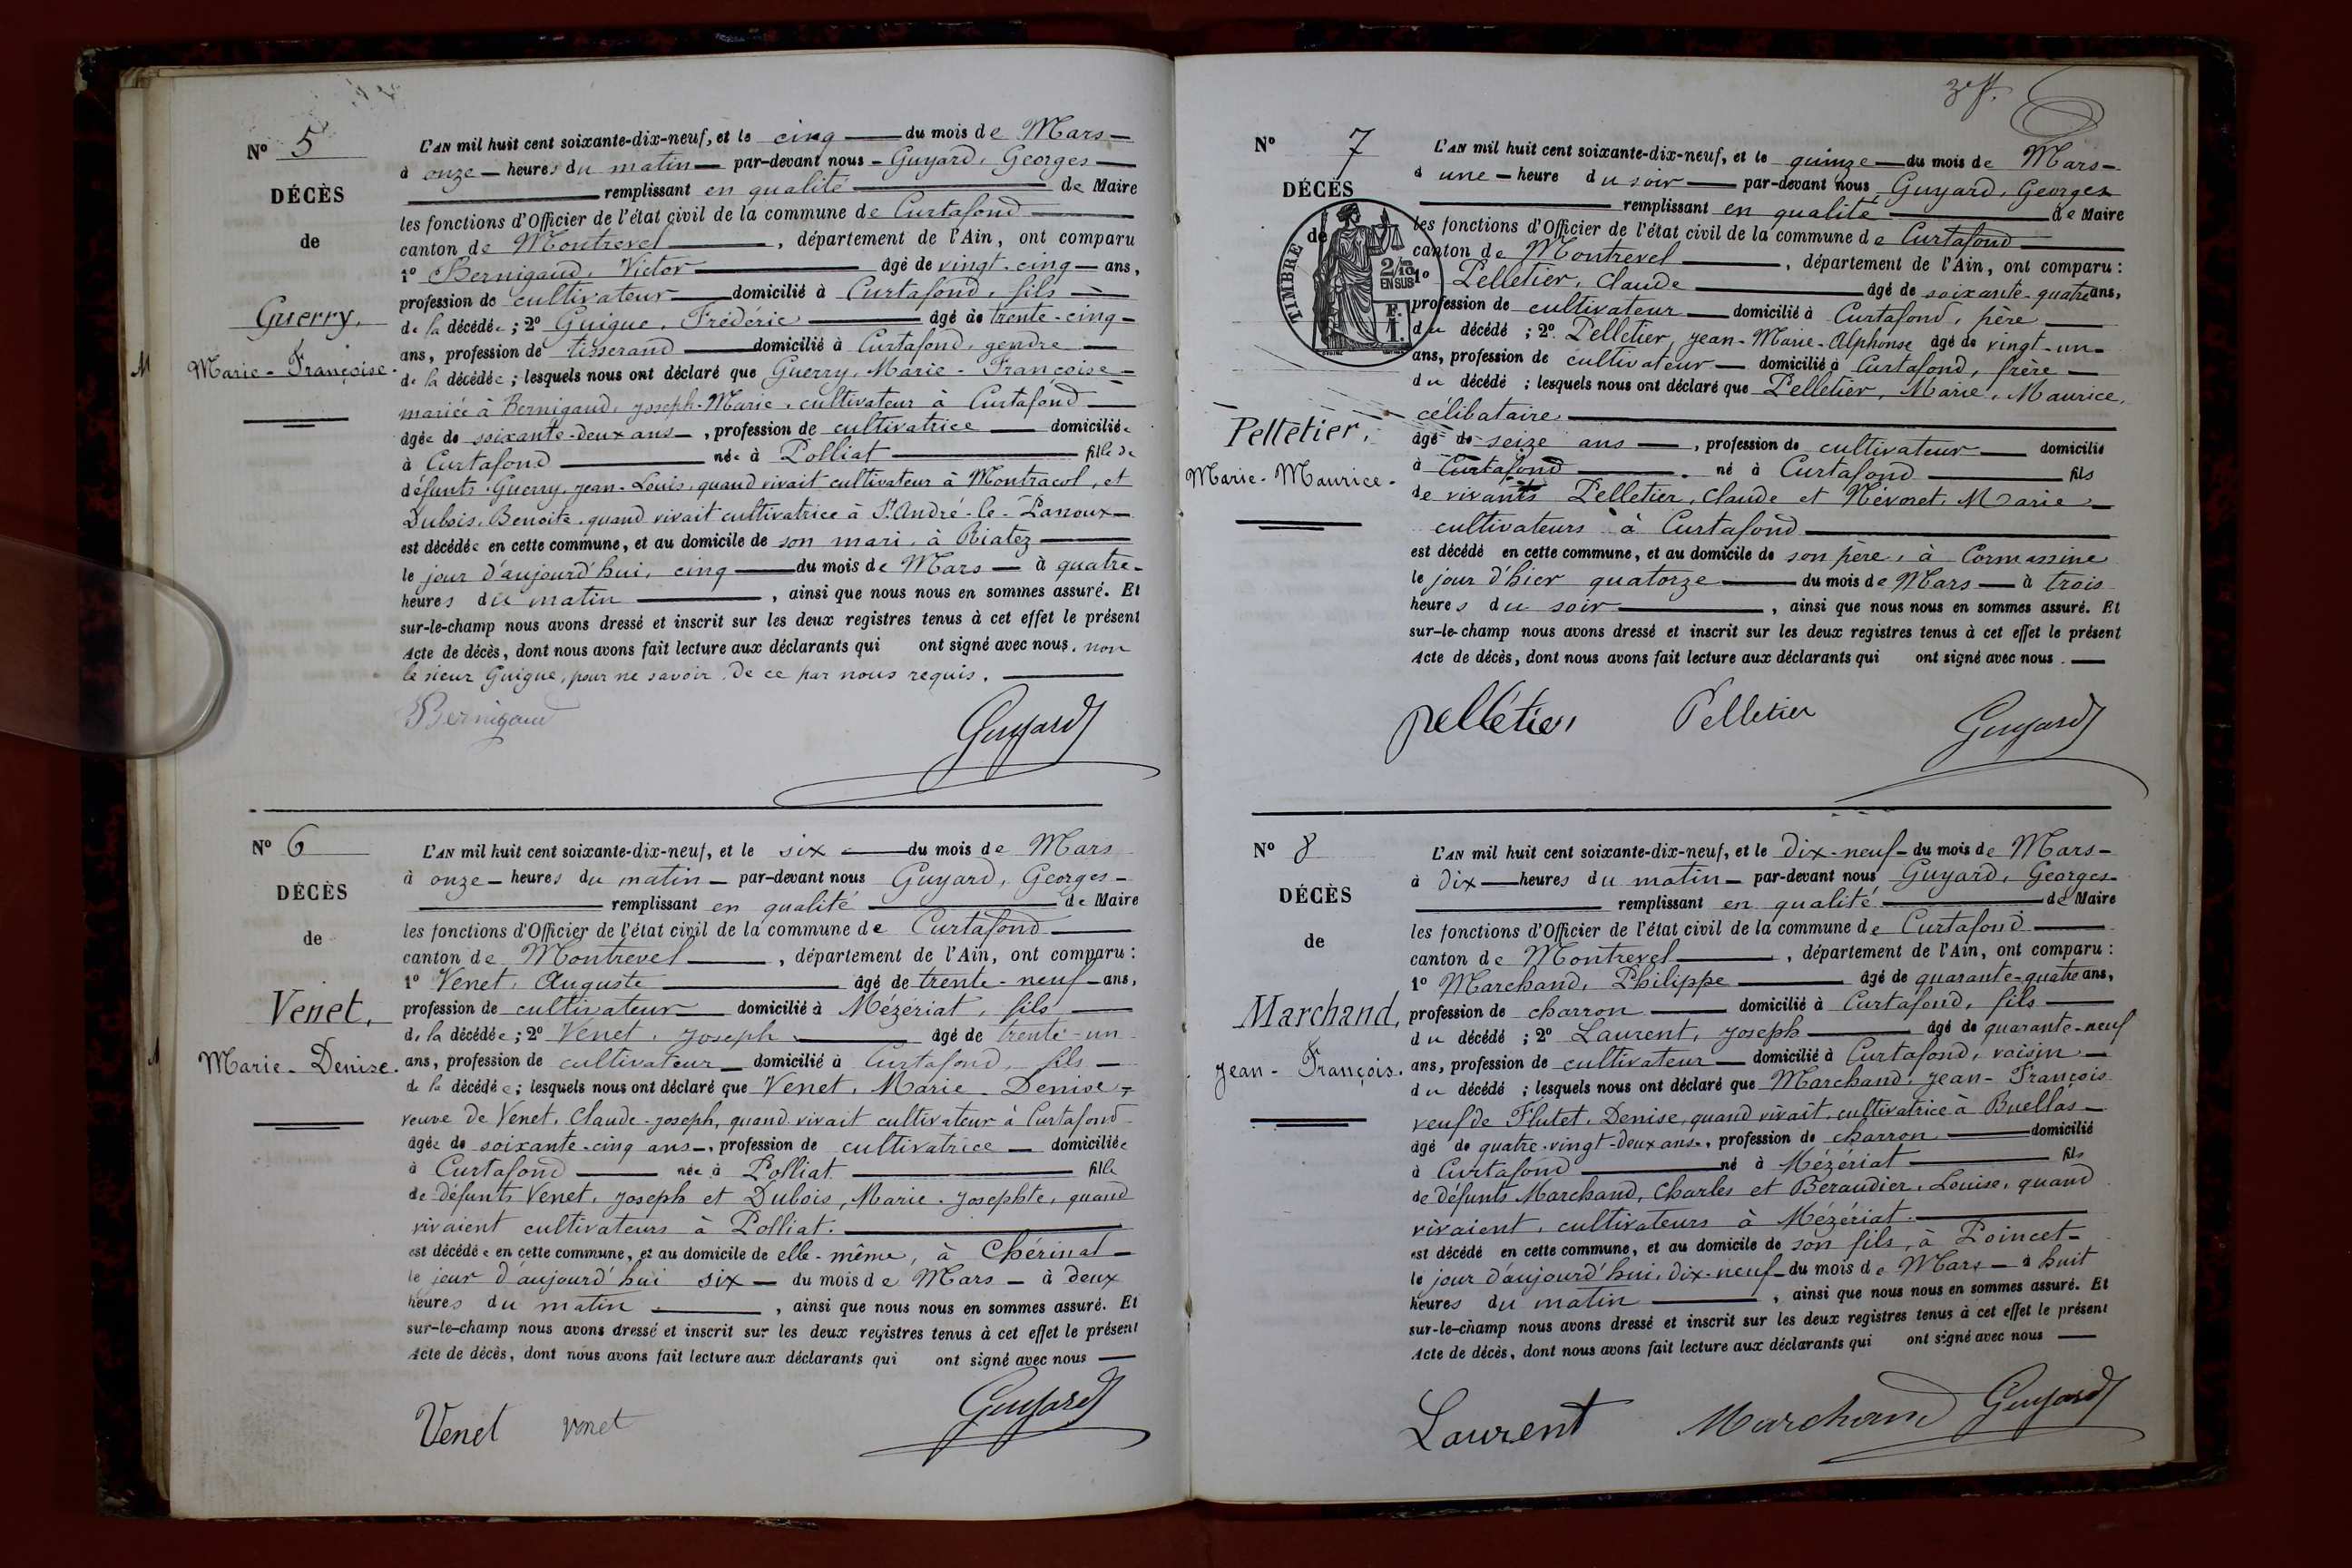 Nº 5
DÉCÈS
de
Guerry,
Marie-Françoise.
L'AN mil huit cent soixante-dix-neuf, et le cinq du mois de Mars
à onze heures du matin par-devant nous Guyard, Georges
remplissant en qualité de Maire
les fonctions d'Officier de l'état civil de la commune de Curtafond
canton de Montrevel, département de l'Ain, ont comparu
1º Bernigaud, Victor âgé de vingt-cinq ans,
profession de cultivateur domicilié à Curtafond, fils
de la décédée; 2º Guigue, Frédéric âgé de trente-cinq
ans, profession de tisserand domicilié à Curtafond, gendre
de la décédée; lesquels nous ont déclaré que Guerry, Marie-Françoise
mariée à Bernigaud, Joseph-Marie, cultivateur à Curtafond
âgée de soixante-deux ans, profession de cultivatrice domiciliée
à Curtafond née à Polliat fille de
défunts Guerry, Jean-Louis, quand vivait cultivateur à Montracol, et
Dubois, Benoite, quand vivait cultivatrice à St. André-le-Panoux
est décédée en cette commune, et au domicile de son mari, à Riatez
le jour d'aujourd'hui, cinq du mois de Mars à quatre
heures du matin, ainsi que nous nous en sommes assuré. Et
sur-le-champ nous avons dressé et inscrit sur les deux registres tenus à cet effet le présent
Acte de décès, dont nous avons fait lecture aux déclarants qui ont signé avec nous, non
le sieur Guigue, pour ne savoir de ce par nous requis.
Bernigaud Guyard
Nº 6
DÉCÈS
de
Venet,
Marie-Denise.
L'AN mil huit cent soixante-dix-neuf, et le six du mois de Mars
à onze heures du matin par-devant nous Guyard, Georges
remplissant en qualité de Maire
les fonctions d'Officier de l'état civil de la commune de Curtafond
canton de Montrevel, département de l'Ain, ont comparu :
1º Venet, Auguste âgé de trente-neuf ans,
profession de cultivateur domicilié à Mézériat, fils
de la décédée; 2º Venet, Joseph âgé de trente-un
ans, profession de cultivateur domicilié à Curtafond, fils
de la décédée; lesquels nous ont déclaré que Venet, Marie-Denise,
veuve de Venet, Claude-Joseph, quand vivait cultivateur à Curtafond
âgée de soixante-cinq ans, profession de cultivatrice domiciliée
à Curtafond née à Polliat fille
de défunts Venet, Joseph et Dubois, Marie-Josephte, quand
vivaient cultivateurs à Polliat.
est décédée en cette commune, et au domicile de elle-même, à Chérinal
le jour d'aujourd'hui six du mois de Mars à deux
heures du matin, ainsi que nous nous en sommes assuré. Et
sur-le-champ nous avons dressé et inscrit sur les deux registres tenus à cet effet le présent
Acte de décès, dont nous avons fait lecture aux déclarants qui ont signé avec nous
Venet venet Guyard
Nº 7
DÉCÈS
de
TIMBRE
2/10
EN SUS
F.
1.
Pelletier,
Marie-Maurice.
L'AN mil huit cent soixante-dix-neuf, et le quinze du mois de Mars
à une heure du soir par-devant nous Guyard, Georges
remplissant en qualité de Maire
les fonctions d'Officier de l'état civil de la commune de Curtafond
canton de Montrevel, département de l'Ain, ont comparu :
1º Pelletier, Claude âgé de soixante-quatre ans,
profession de cultivateur domicilié à Curtafond, père
du décédé ; 2º Pelletier, Jean-Marie-Alphonse âgé de vingt-un
ans, profession de cultivateur domicilié à Curtafond, frère
du décédé ; lesquels nous ont déclaré que Pelletier, Marie, Maurice,
célibataire
âgé de seize ans, profession de cultivateur domicilié
à Curtafond né à Curtafond fils
de vivants Pelletier, Claude et Névoret, Marie
cultivateurs à Curtafond
est décédé en cette commune, et au domicile de son père, à Cormassine
le jour d'hier quatorze du mois de Mars à trois
heures du soir, ainsi que nous nous en sommes assuré. Et
sur-le-champ nous avons dressé et inscrit sur les deux registres tenus à cet effet le présent
Acte de décès, dont nous avons fait lecture aux déclarants qui ont signé avec nous.
pelletier Pelletier Guyard
Nº 8
DÉCÈS
de
Marchand,
Jean-François.
L'AN mil huit cent soixante-dix-neuf, et le dix-neuf du mois de Mars
à dix heures du matin par-devant nous Guyard, Georges
remplissant en qualité de Maire
les fonctions d'Officier de l'état civil de la commune de Curtafond
canton de Montrevel, département de l'Ain, ont comparu :
1º Marchand, Philippe âgé de quarante-quatre ans,
profession de charron domicilié à Curtafond, fils
du décédé ; 2º Laurent, Joseph âgé de quarante-neuf
ans, profession de cultivateur domicilié à Curtafond, voisin
du décédé ; lesquels nous ont déclaré que Marchand, Jean-François
veuf de Flutet, Denise, quand vivait, cultivatrice à Buellas
âgé de quatre-vingt-deux ans, profession de charron domicilié
à Curtafond né à Mézériat fils
de défunts Marchand, Charles et Beraudier, Louise, quand
vivaient, cultivateurs à Mézériat.
est décédé en cette commune, et au domicile de son fils, à Poincet
le jour d'aujourd'hui, dix-neuf du mois de Mars à huit
heures du matin, ainsi que nous nous en sommes assuré. Et
sur-le-champ nous avons dressé et inscrit sur les deux registres tenus à cet effet le présent
Acte de décès, dont nous avons fait lecture aux déclarants qui ont signé avec nous
Laurent Marchand Guyard